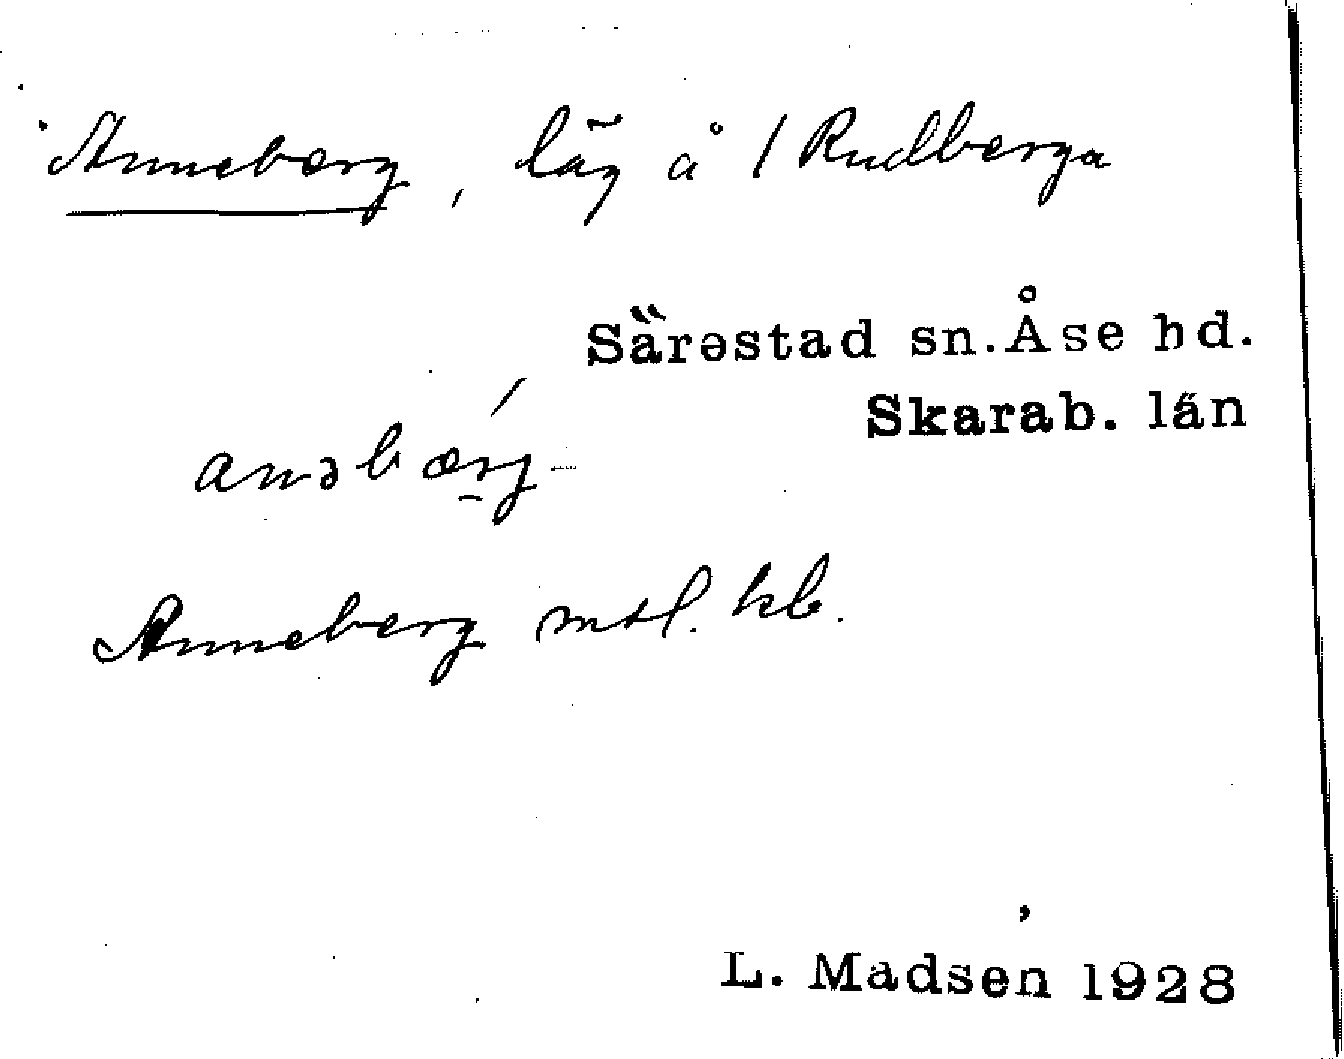 Anneberg, läg å 1 Rudberga
Särestad sn. Åse hd.
Skarab. län
Anneberg mtl. kb.
L. Madsen 1928